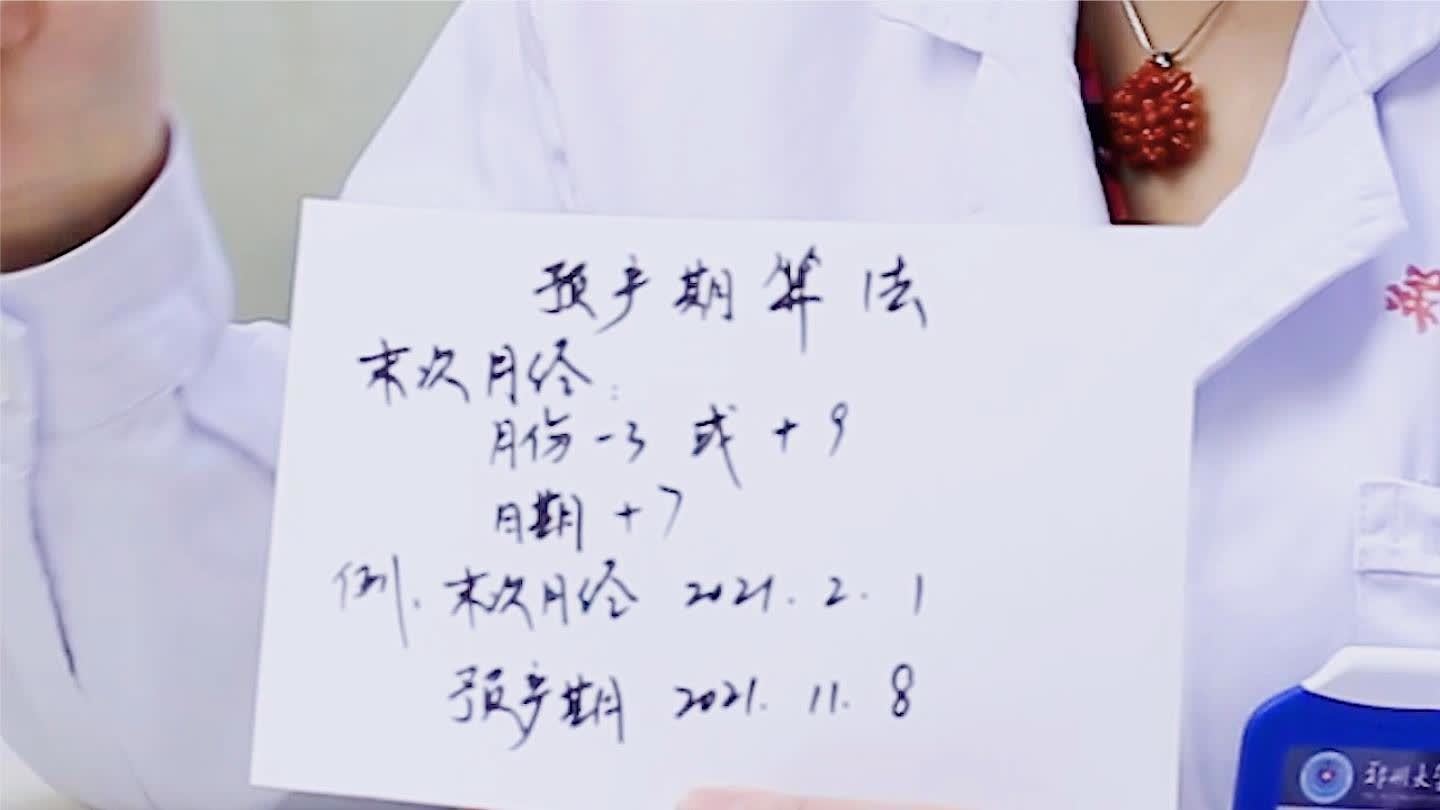 预产期算法
末次月经:
月份-3 或 +9
日期 +7
例. 末次月经 2021. 2. 1
预产期 2021. 11. 8
郑
郑州大学